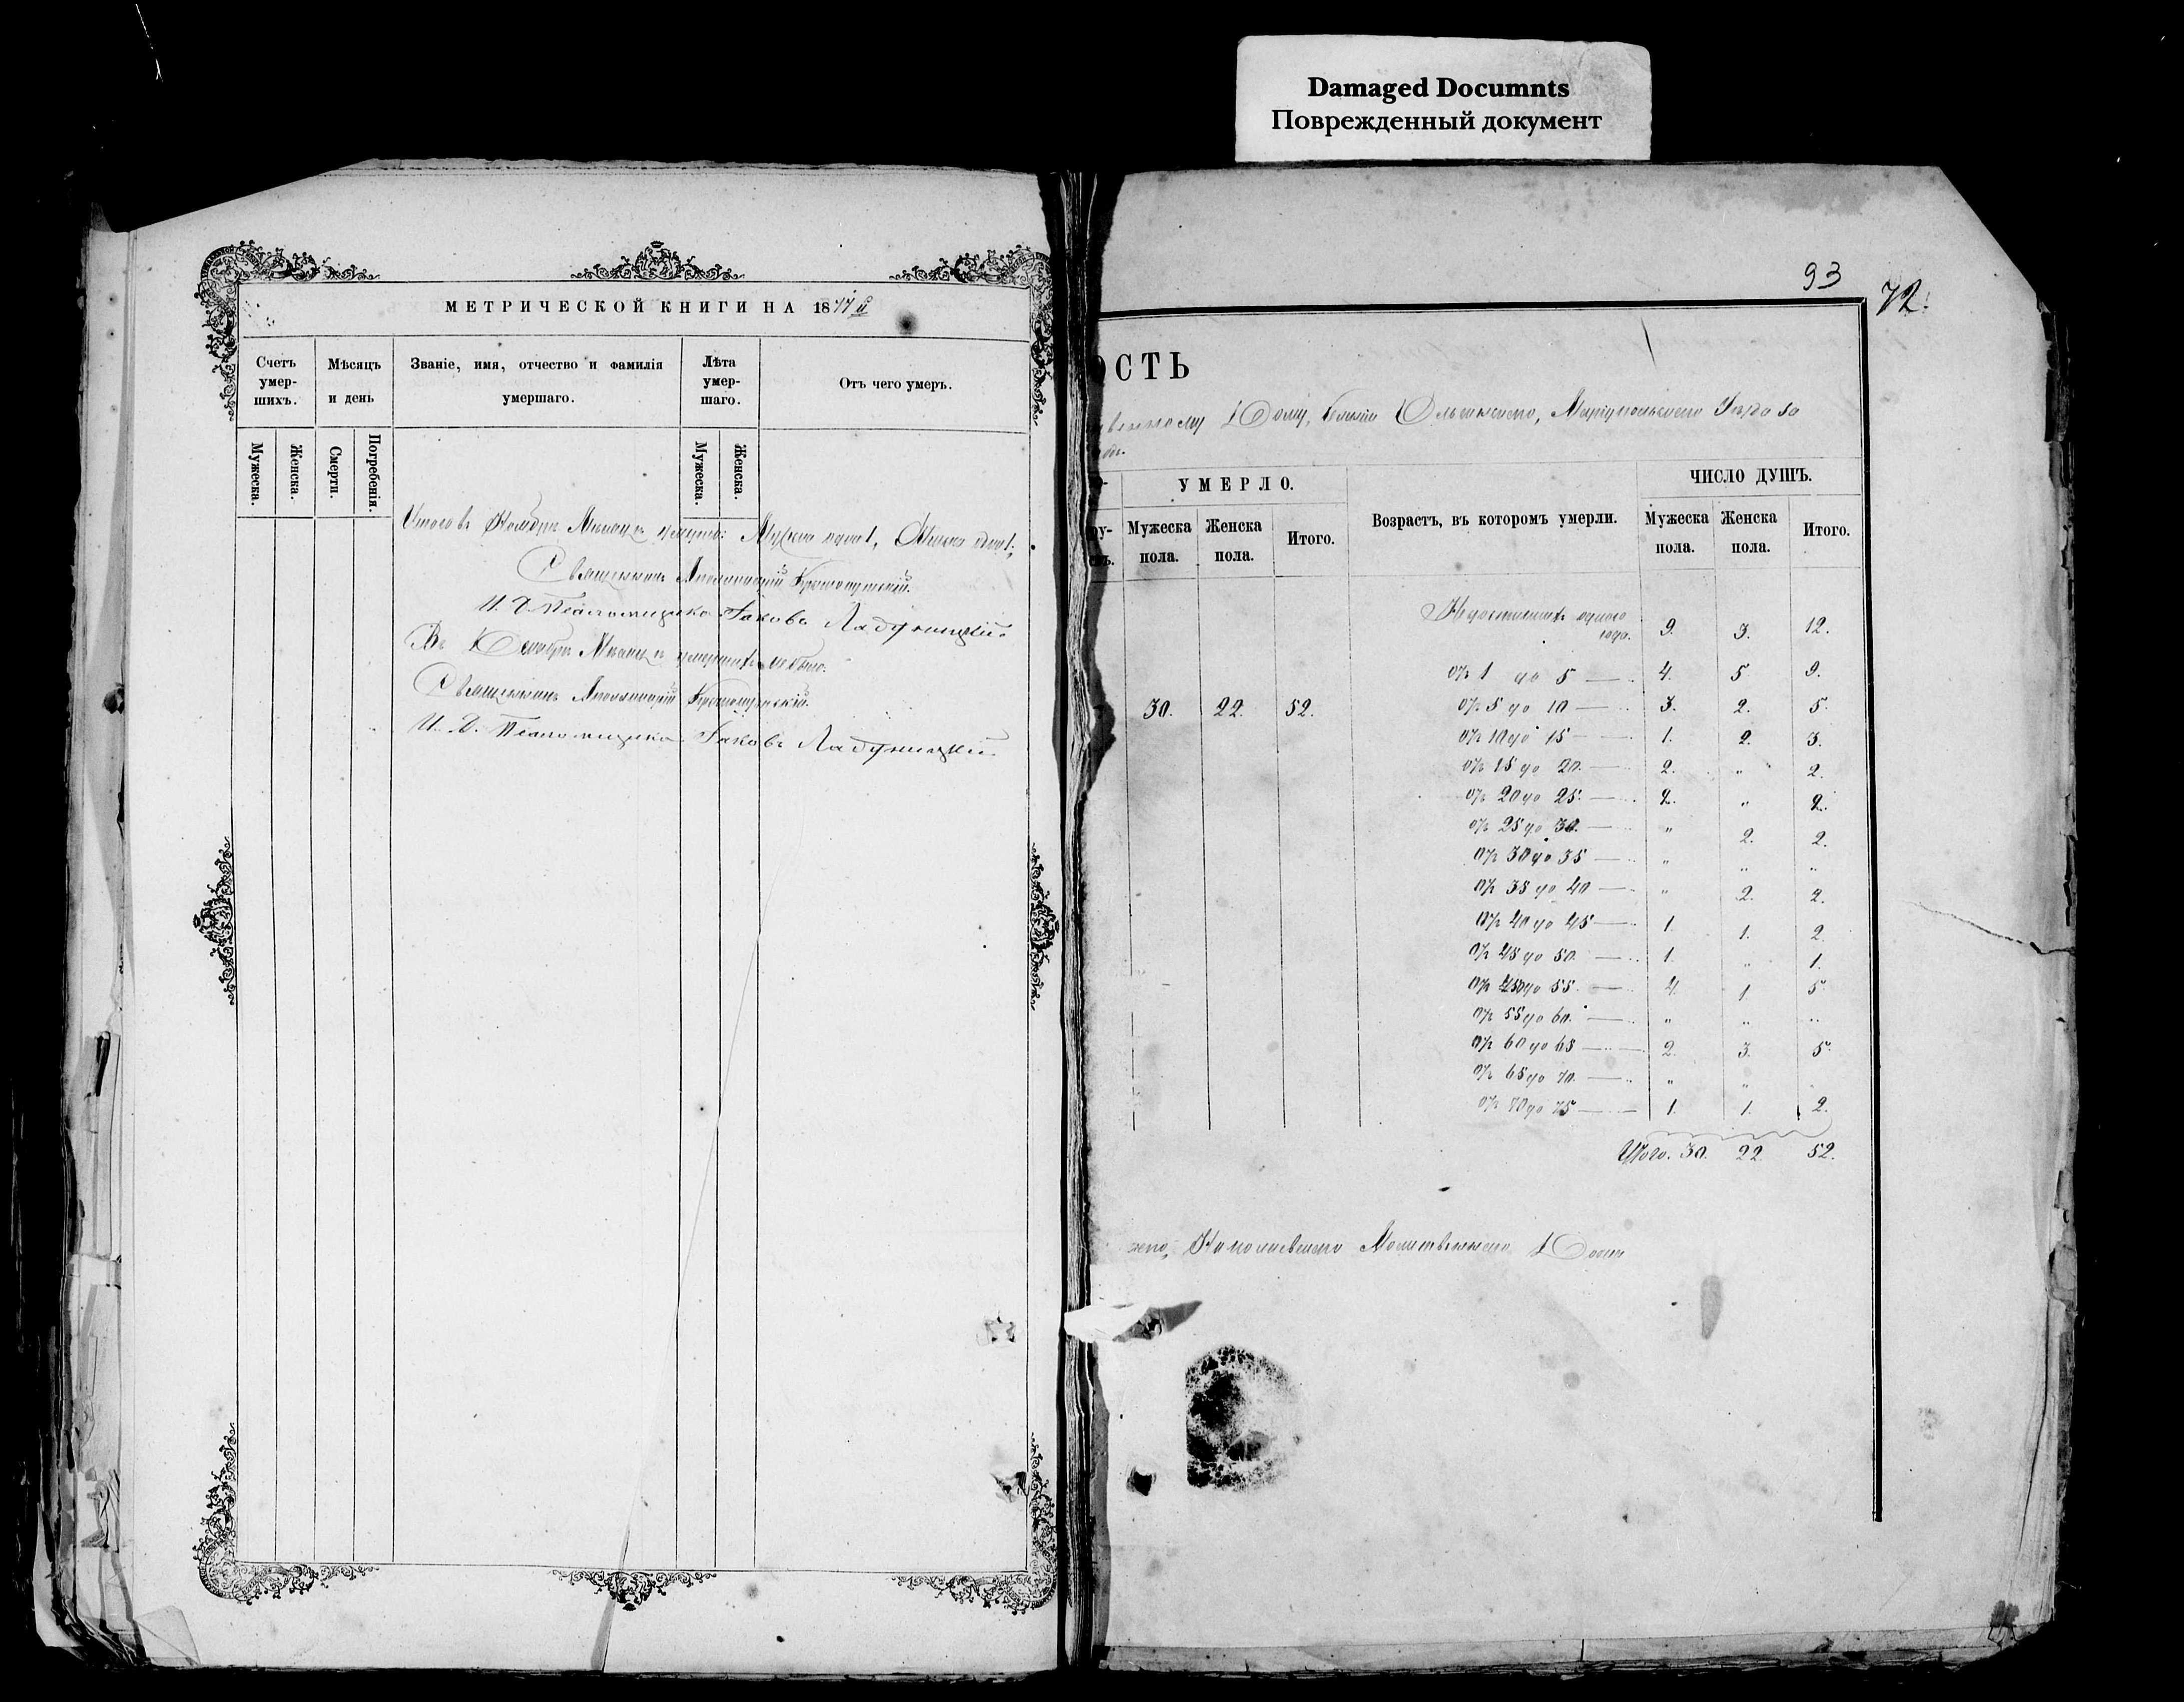 Damaged Documnts
Поврежденный документ
МЕТРИЧЕСКОЙ КНИГИ НА 1877 й
Счетъ умер-шихъ.
Мѣсяцъ и день
Званіе, имя, отчество и фамилія умершаго.
Лѣта умер-шаго.
Отъ чего умеръ.
Мужеска.
Женска.
Смерти.
Погребенія.
Мужеска.
Женска.
Итого въ Ноябрѣ Мѣсяцѣ умерло: Мужска одинъ 1, Женска одна 1;
Священникъ Аполлинарій
И. д. Псаломщика Іаковъ Ладуницкій.
Въ Декабрѣ Мѣсяцѣ умершихъ не было.
Священникъ Аполлинарій
И. д. Псаломщика Іаковъ Ладуницкій
93
72.
ОСТЬ
Дому, Маріупольскаго Уѣзда за
УМЕРЛО.
Мужеска пола.
Женска пола.
Итого.
Возрастъ, въ которомъ умерли.
ЧИСЛО ДУШЪ.
Мужеска пола.
Женска пола.
Итого.
Недостигшихъ одного года. 9. 3. 12.
отъ 1 до 5 — 4. 5 9.
30. 22. 52.
отъ 5 до 10 — 3. 2. 5.
отъ 10 до 15 — 1. 2. 3.
отъ 15 до 20. — 2. „ 2.
отъ 20 до 25. — 2. „ 2.
отъ 25 до 30. — „ 2. 2.
отъ 30 до 35 — „ „ „
отъ 35 до 40 — „ 2. 2.
отъ 40 до 45 — 1. 1. 2.
отъ 45 до 50. — 1. „ 1.
отъ 50 до 55. — 4. 1. 5.
отъ 55 до 60. — „ „ „
отъ 60 до 65 — 2. 3. 5.
отъ 65 до 70. — „ „
отъ 70 до 75 — 1. 1. 2.
Итого. 30. 22 52.
Николаевскаго Молитвеннаго Дома